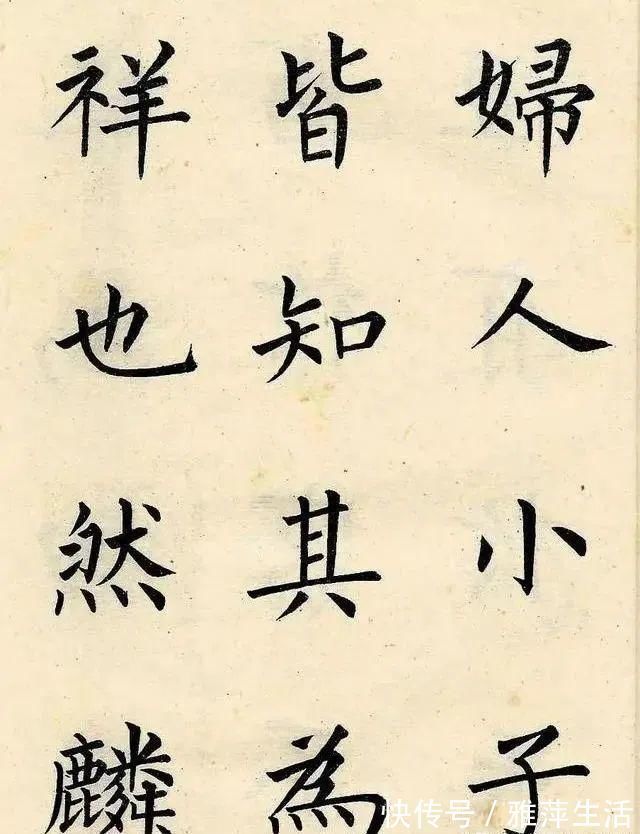 婦人小子
皆知其為
祥也然麟
快传号/雅萍生活